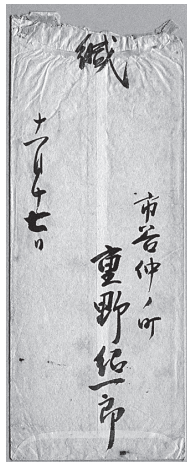 緘
市谷仲ノ町
重野紹一郎
十一月十七日